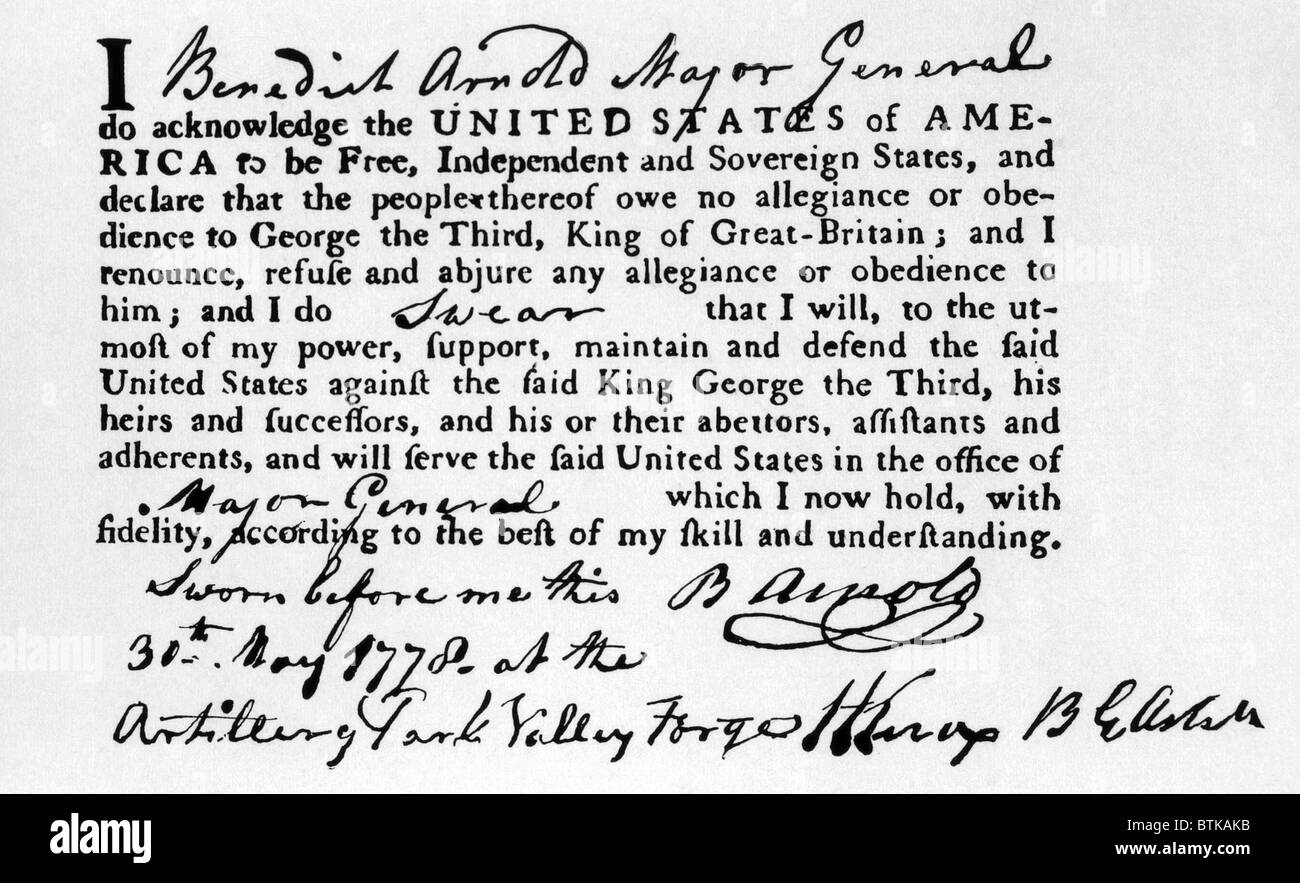 I Benedict Arnold Major General
do acknowledge the UNITED STATES of AME-
RICA to be Free, Independent and Sovereign States, and
declare that the people thereof owe no allegiance or obe-
dience to George the Third, King of Great-Britain; and I
renounce, refuſe and abjure any allegiance or obedience to
him; and I do Swear that I will, to the ut-
moſt of my power, ſupport, maintain and defend the ſaid
United States againſt the ſaid King George the Third, his
heirs and ſucceſſors, and his or their abettors, aſſiſtants and
adherents, and will ſerve the ſaid United States in the office of
Major General which I now hold, with
fidelity, according to the beſt of my ſkill and underſtanding.
Sworn before me this B Arnold
30th. May 1778. at the
Artillery Park Valley Forge HKnox B G Artill
alamy
alamy
Image ID: BTKAKB
www.alamy.com